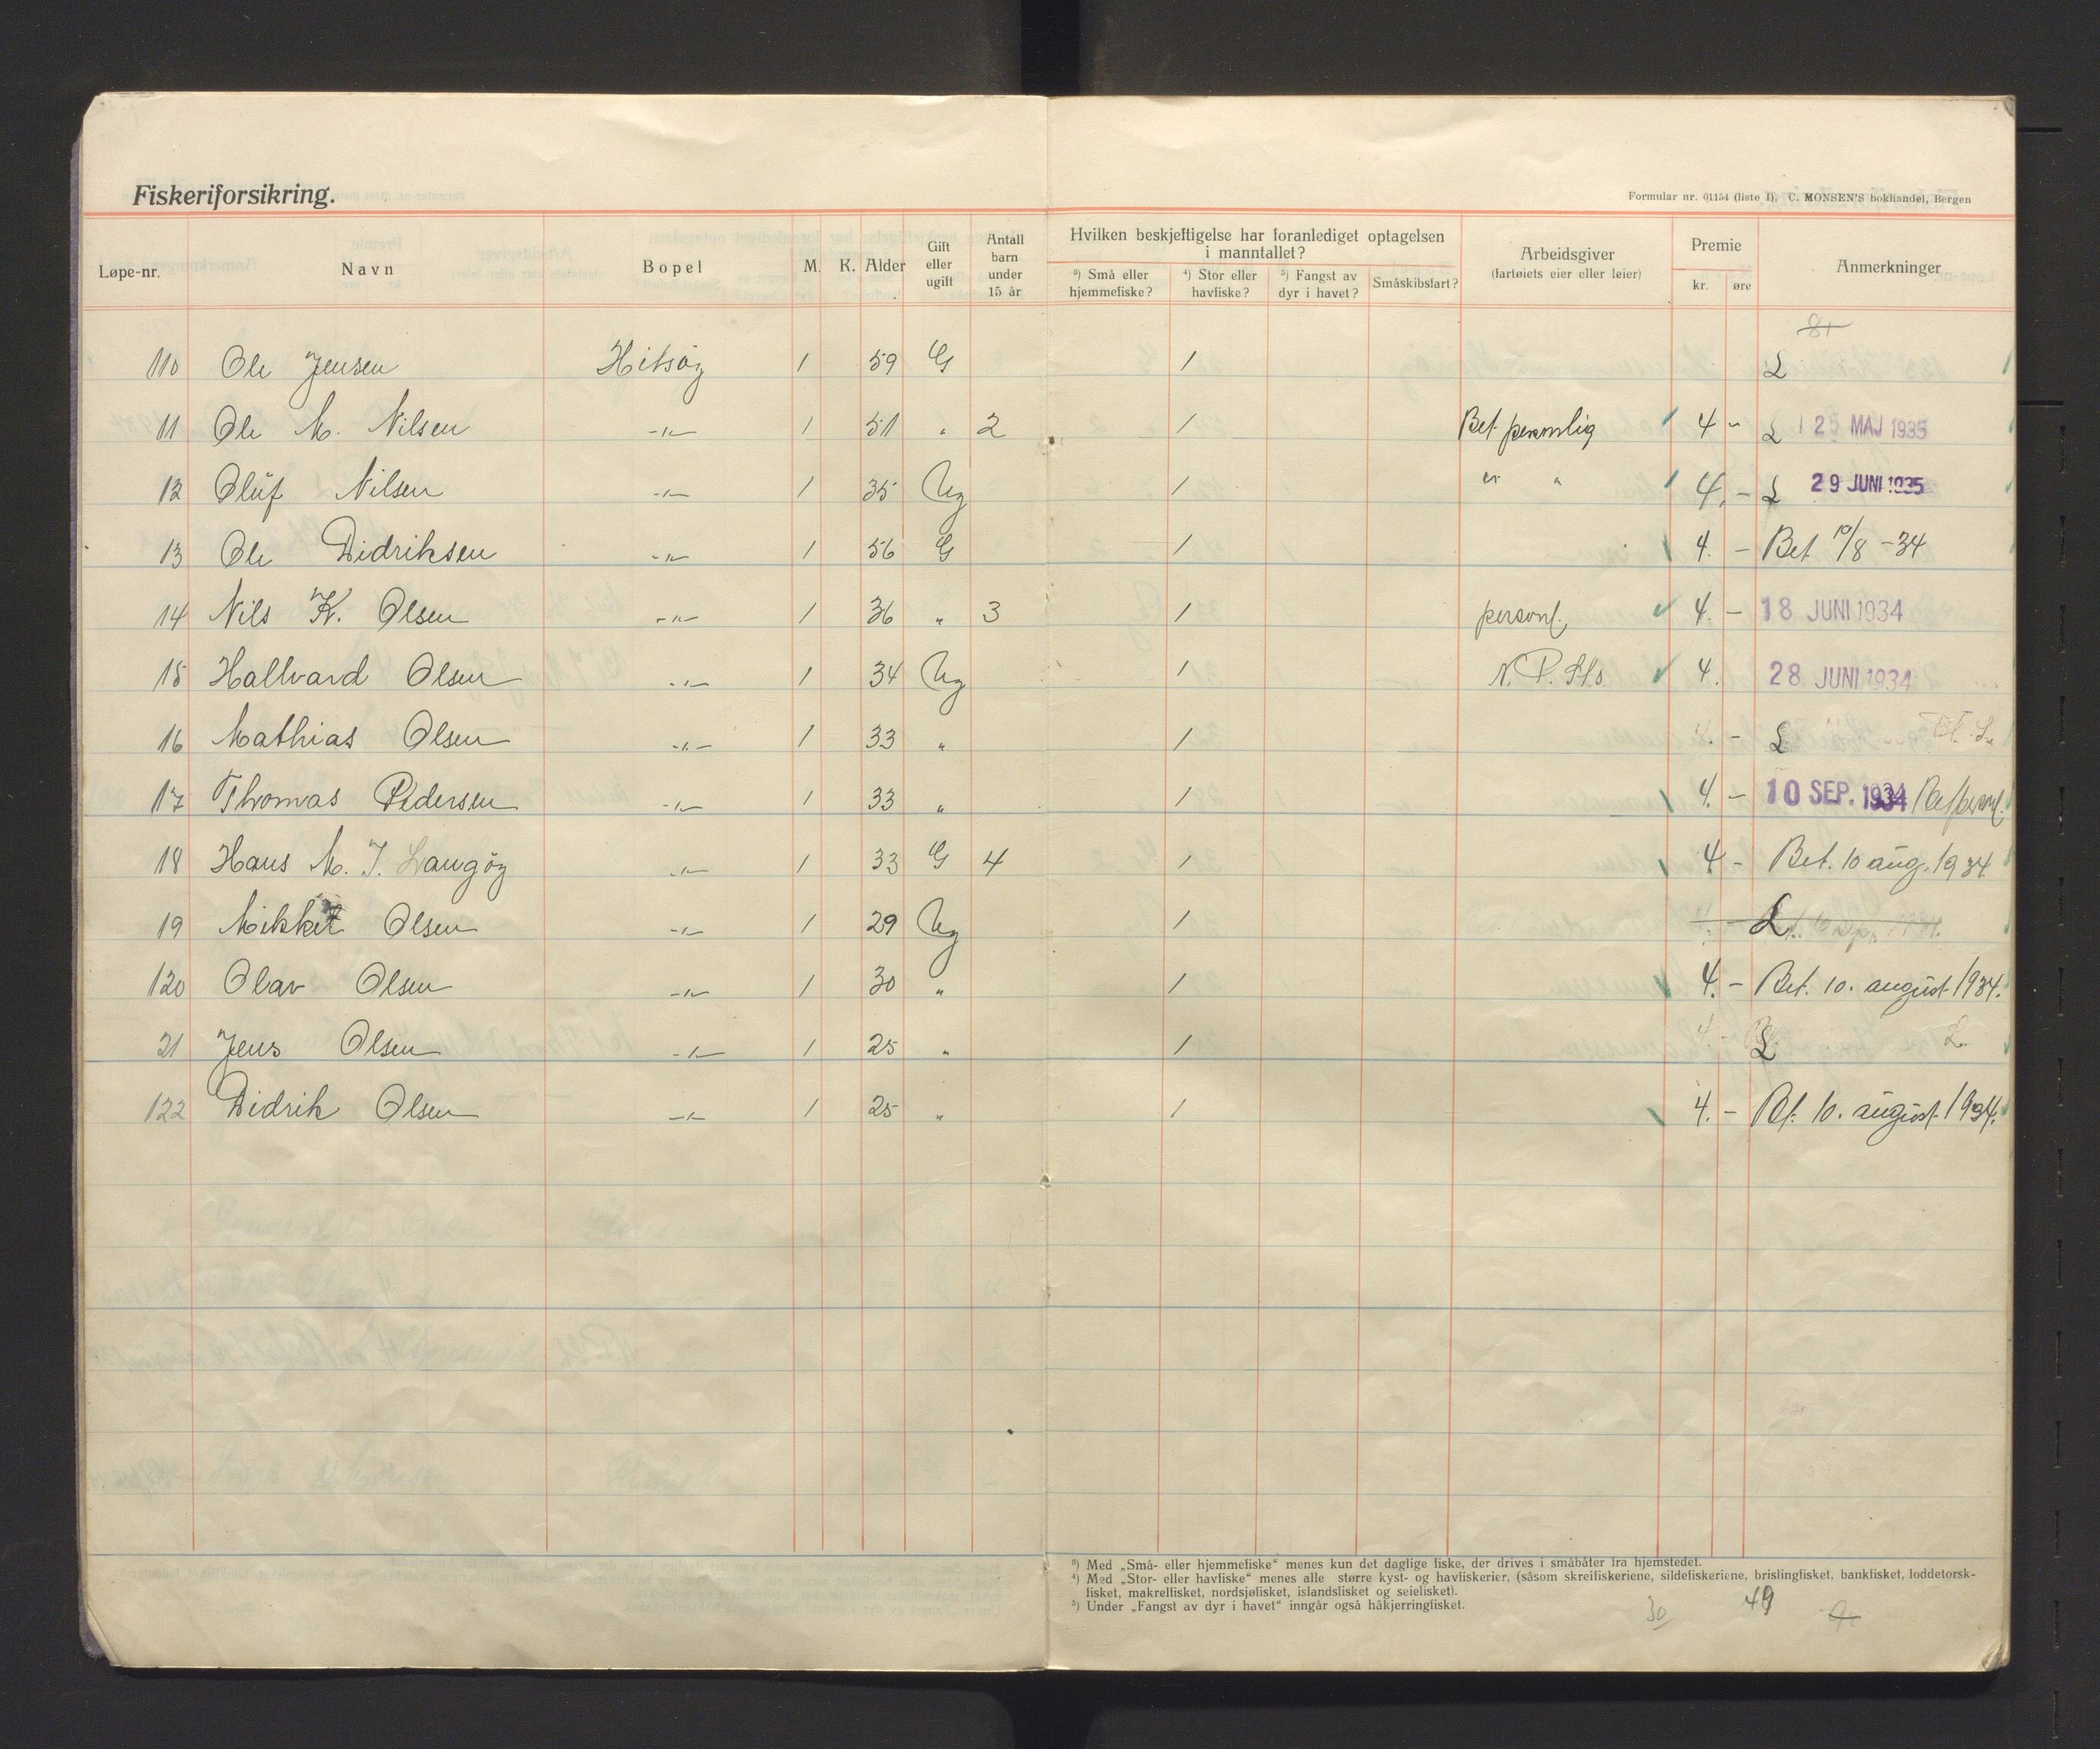 Fiskeriforsikring.
Formular nr. 01154 (liste I). C. MONSEN'S bokhandel, Bergen
Løpe-nr. Navn Bopel M. K. Alder Gift eller ugift Antall barn under 15 år Hvilken beskjeftigelse har foranlediget optagelsen i manntallet? ³) Små eller hjemmefiske? ⁴) Stor eller havfiske? ⁵) Fangst av dyr i havet? Småskibsfart? Arbeidsgiver (fartøiets eier eller leier) Premie kr. øre Anmerkninger
110 Ole Jensen Hitsøy 1 59 G 1 L
11 Ole M. Nilsen -"- 1 51 " 2 1 Bet personlig 4 - L 25 MAJ 1935
12 Oluf Nilsen -"- 1 35 Ug 1 " " 4. - L 29 JUNI 1935
13 Ole Didriksen -"- 1 56 G 1 4. - Bet 10/8 -34
14 Nils K. Olsen -"- 1 36 " 3 1 personl. 4. - 18 JUNI 1934
15 Hallvard Olsen -"- 1 34 Ug 1 N. P. 4. 28 JUNI 1934
16 Mathias Olsen -"- 1 33 " 1 4. - L
17 Thomas Pedersen -"- 1 33 " 1 4. - 10 SEP. 1934 Bet personl.
18 Hans M. J. Langøy -"- 1 33 G 4 1 4 - Bet. 10 aug. 1934
19 Mikkel Olsen -"- 1 29 Ug 1 - L
120 Olav Olsen -"- 1 30 " 1 4. - Bet. 10. august 1934.
21 Jens Olsen -"- 1 25 " 1 4. - L L.
122 Didrik Olsen -"- 1 25 " 1 4. - Bet. 10. august 1934.
³) Med „Små- eller hjemmefiske“ menes kun det daglige fiske, der drives i småbåter fra hjemstedet.
⁴) Med „Stor- eller havfiske“ menes alle større kyst- og havfiskerier, (såsom skreifiskeriene, sildefiskeriene, brislingfisket, bankfisket, loddetorsk-
fisket, makrelfisket, nordsjøfisket, islandsfisket og seiefisket).
⁵) Under „Fangst av dyr i havet“ inngår også håkjerringfisket.
30 49